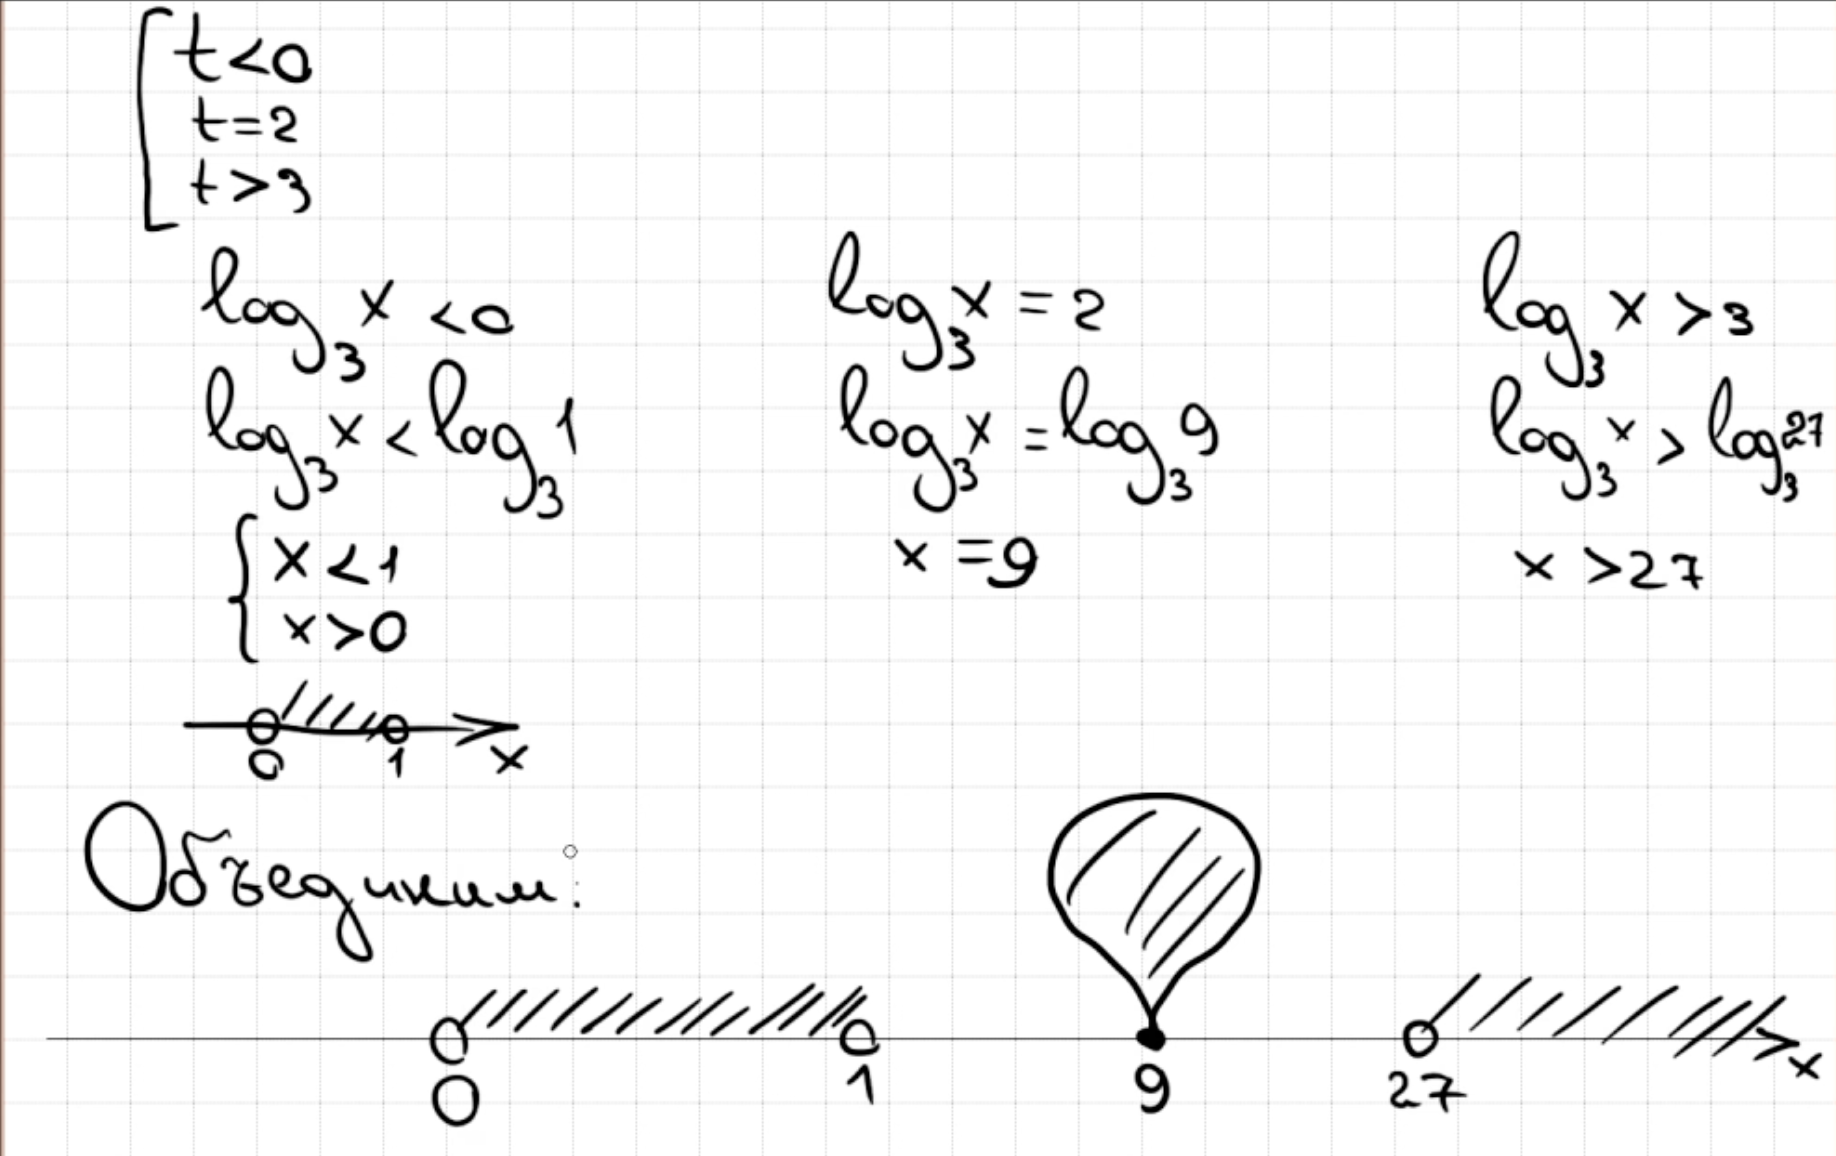 t<0
t=2
t>3
log₃ x <0
log₃ x < log₃ 1
{ x<1
x>0
0 1 x
log₃ x = 2
log₃ x = log₃ 9
x =9
log₃ x >3
log₃ x > log₃ 27
x >27
Объединим:
0 1 9 27 x